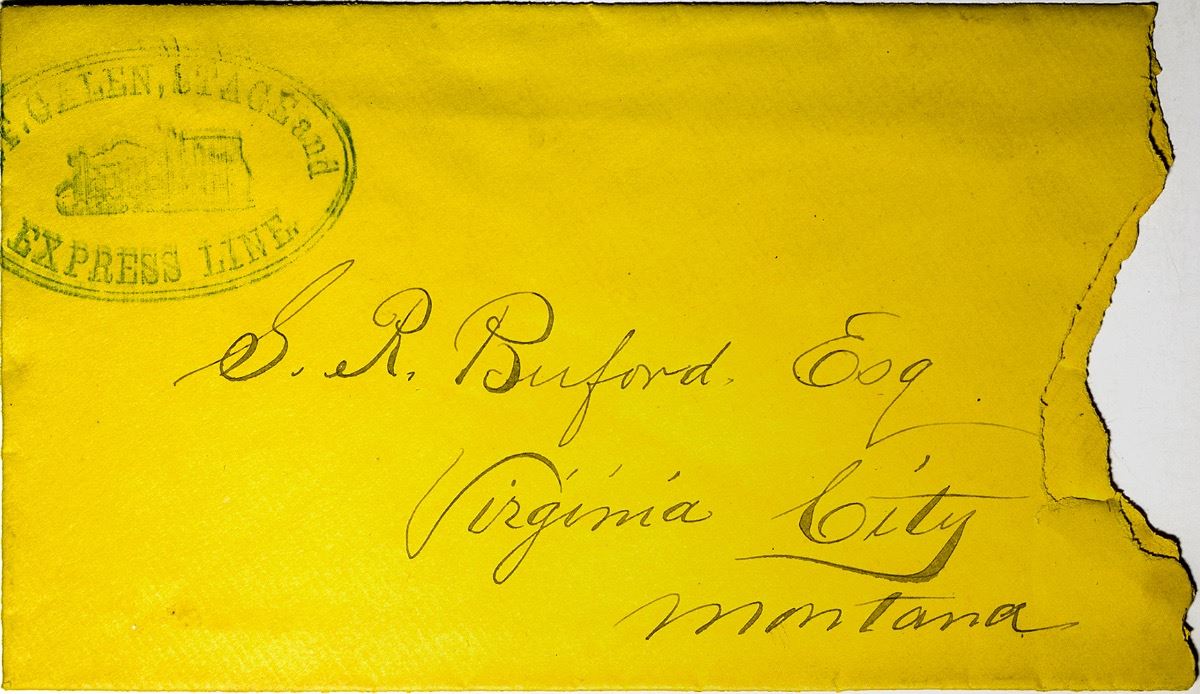 F. GALEN, STAGE and
EXPRESS LINE.
S. R. Buford. Esq
Virginia City
Montana